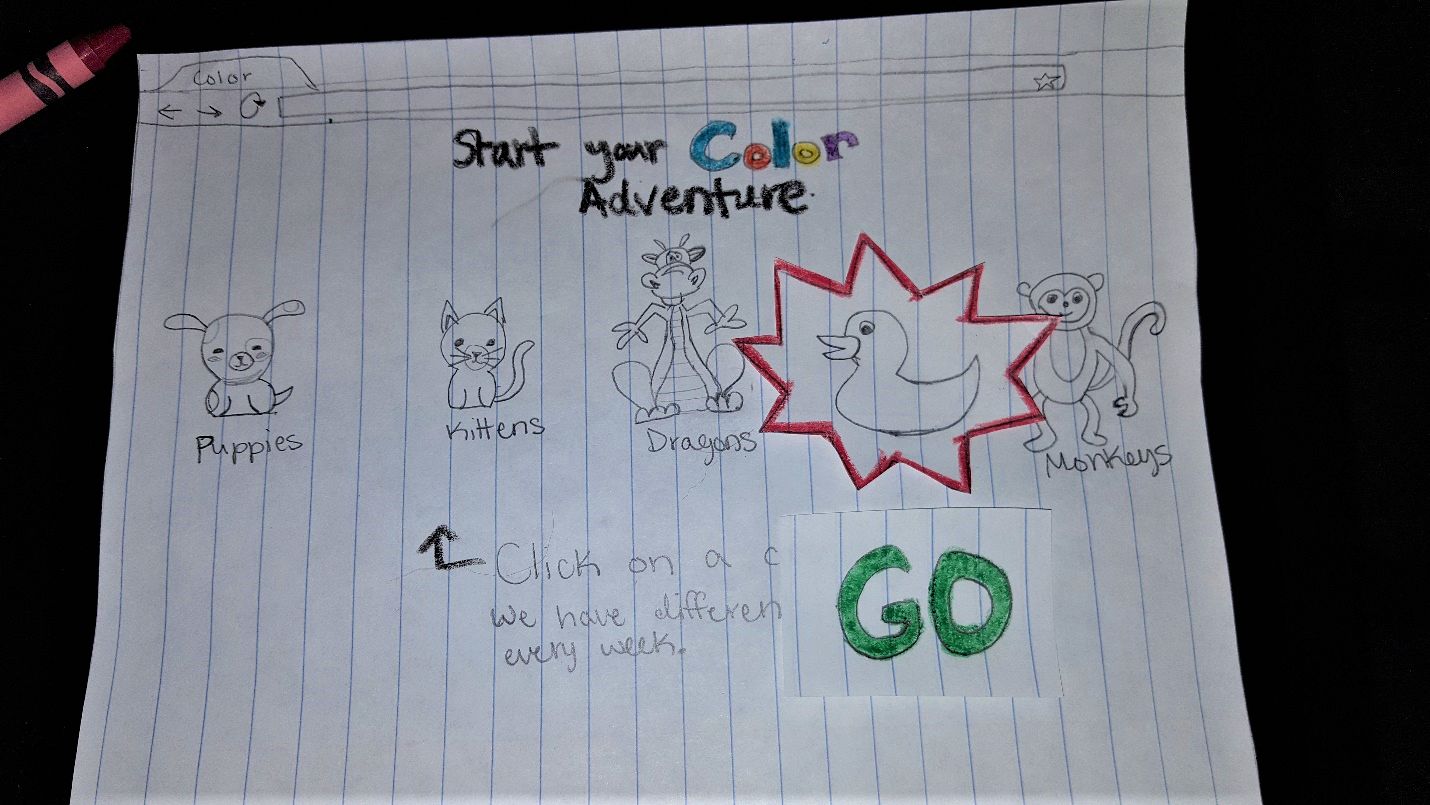 Color
Start your Color
Adventure
Puppies
Kittens
Dragons
Monkeys
Click on a c
we have differen
every week.
GO